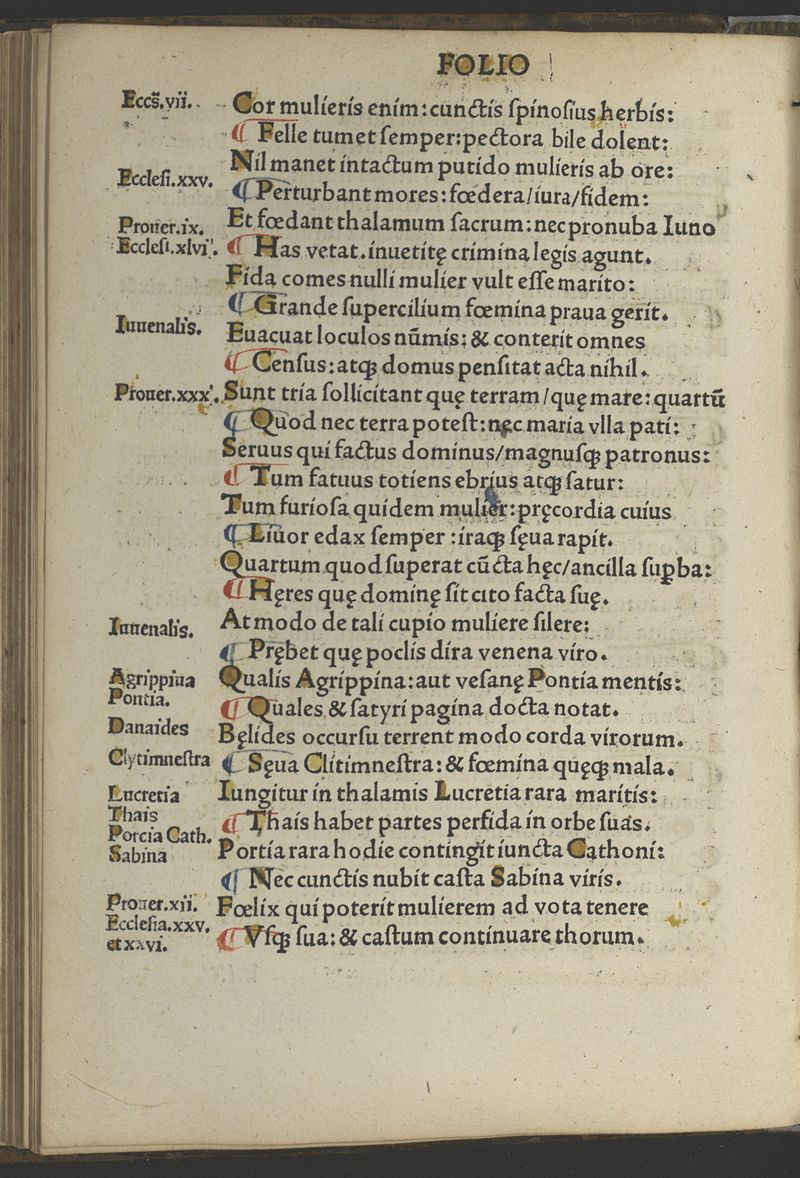 FOLIO
Eccs̄.vii. Cor mulieris enim: cunctis ſpinoſius herbis:
¶ Felle tumet ſemper: pectora bile dolent:
Nil manet intactum putido mulieris ab ore:
Eccleſi.xxv. ¶ Perturbant mores: fœdera/iura/fidem:
Prouer.ix. Et fœdant thalamum ſacrum: nec pronuba Iuno
Eccleſi.xlvi. ¶ Has vetat. inuetitę crimina legis agunt.
Fida comes nulli mulier vult eſſe marito:
¶ Grande ſupercilium fœmina praua gerit.
Iuuenalis. Euacuat loculos nūmis: & conterit omnes
¶ Cenſus: atqꝫ domus penſitat acta nihil.
Prouer.xxx. Sunt tria ſollicitant quę terram/quę mare: quartū
¶ Quod nec terra poteſt: nec maria vlla pati:
Seruus qui factus dominus/magnuſqꝫ patronus:
¶ Tum fatuus totiens ebrius atqꝫ ſatur:
Tum furioſa quidem mulier: pręcordia cuius
¶ Liuor edax ſemper: iraqꝫ ſęua rapit.
Quartum quod ſuperat cūcta hęc/ancilla ſuꝑba:
¶ Hęres quę dominę ſit cito facta ſuę.
Iuuenalis. At modo de tali cupio muliere ſilere:
¶ Prębet quę poclis dira venena viro.
Agrippina Qualis Agrippina: aut veſanę Pontia mentis:
Pontia. ¶ Quales & ſatyri pagina docta notat.
Danaides Bęlides occurſu terrent modo corda virorum.
Clytimneſtra ¶ Sęua Clitimneſtra: & fœmina quęqꝫ mala.
Lucretia Iungitur in thalamis Lucretia rara maritis:
Thais ¶ Thais habet partes perfida in orbe ſuas.
Porcia Cath. Portia rara hodie contingit iuncta Cathoni:
Sabina ¶ Nec cunctis nubit caſta Sabina viris.
Prouer.xii. Fœlix qui poterit mulierem ad vota tenere
Eccleſia.xxv. ¶ Vſqꝫ ſua: & caſtum continuare thorum.
et xxvi.